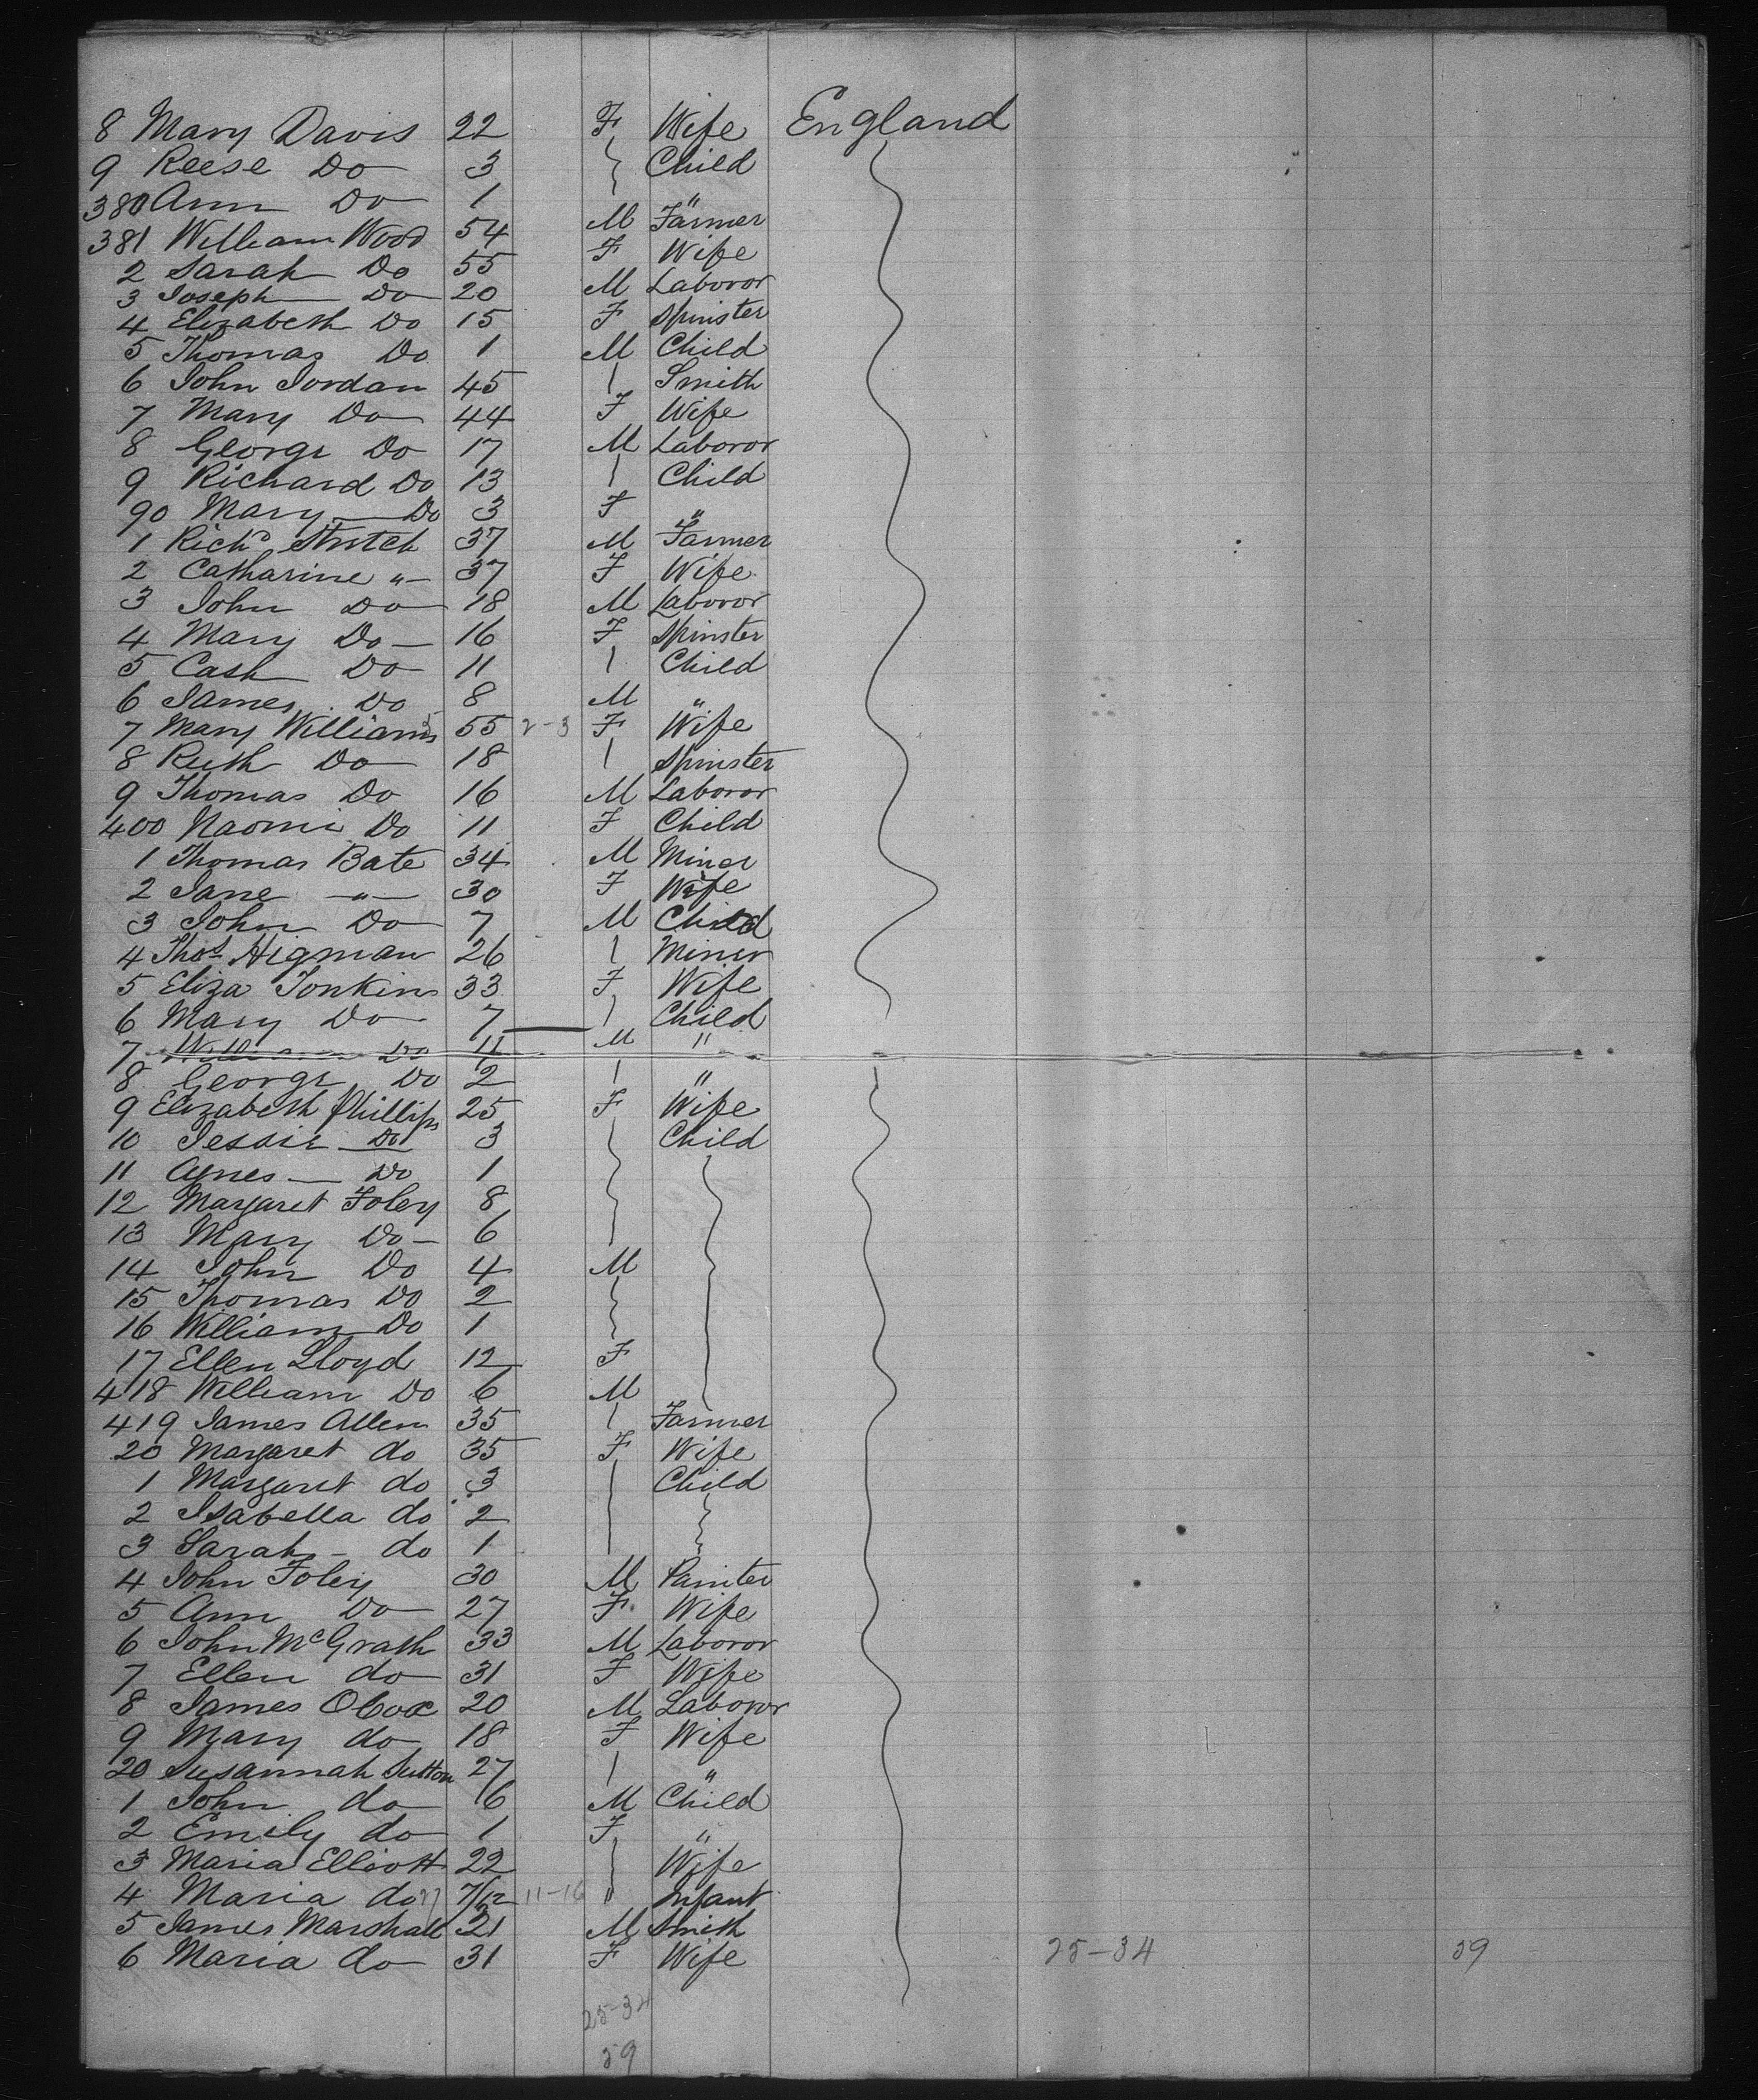 8 Mary Davis 22 F Wife England
9 Reese Do 3 Child
380 Ann Do 1 "
381 William Wood 54 M Farmer
2 Sarah Do 55 F Wife
3 Joseph Do 20 M Laboror
4 Elizabeth Do 15 F Spinster
5 Thomas Do 1 M Child
6 John Jordan 45 Smith
7 Mary Do 44 F Wife
8 George Do 17 M Laboror
9 Richard Do 13 Child
90 Mary Do 3 F "
1 Richd 37 M Farmer
2 Catharine " 37 F Wife
3 John Do 18 M Laboror
4 Mary Do 16 F Spinster
5 Cash Do 11 Child
6 James Do 8 M "
7 Mary Williams 55 2-3 F Wife
8 Ruth Do 18 Spinster
9 Thomas Do 16 M Laboror
400 Naomi Do 11 F Child
1 Thomas Bate 34 M Miner
2 Jane " 30 F Wife
3 John Do 7 M Child
4 Thos Higman 26 Miner
5 Eliza Tonkins 33 F Wife
6 Mary Do 7 Child
7 William Do 4 M "
8 George Do 2 "
9 Elizabeth Phillips 25 F Wife
10 Jessie Do 3 Child
11 Agnes Do 1
12 Margaret Foley 8
13 Mary Do 6
14 John Do 4 M
15 Thomas Do 2
16 William Do 1
17 Ellen Lloyd 12 F
418 William Do 6 M
419 James Allen 35 Farmer
20 Margaret do 35 F Wife
1 Margaret do 3 Child
2 Isabella do 2
3 Sarah do 1
4 John Foley 30 M Painter
5 Ann Do 27 F Wife
6 John McGrath 33 M Laboror
7 Ellen do 31 F Wife
8 James 20 M Laboror
9 Mary do 18 F Wife
20 Susannah Sutton 27 "
1 John do 6 M Child
2 Emily do 1 F "
3 Maria Elliott 22 Wife
4 Maria do 7/12 11-16 " Infant
5 James Marshall 21 M Smith
6 Maria do 31 F Wife 25-34 59
25-34
59